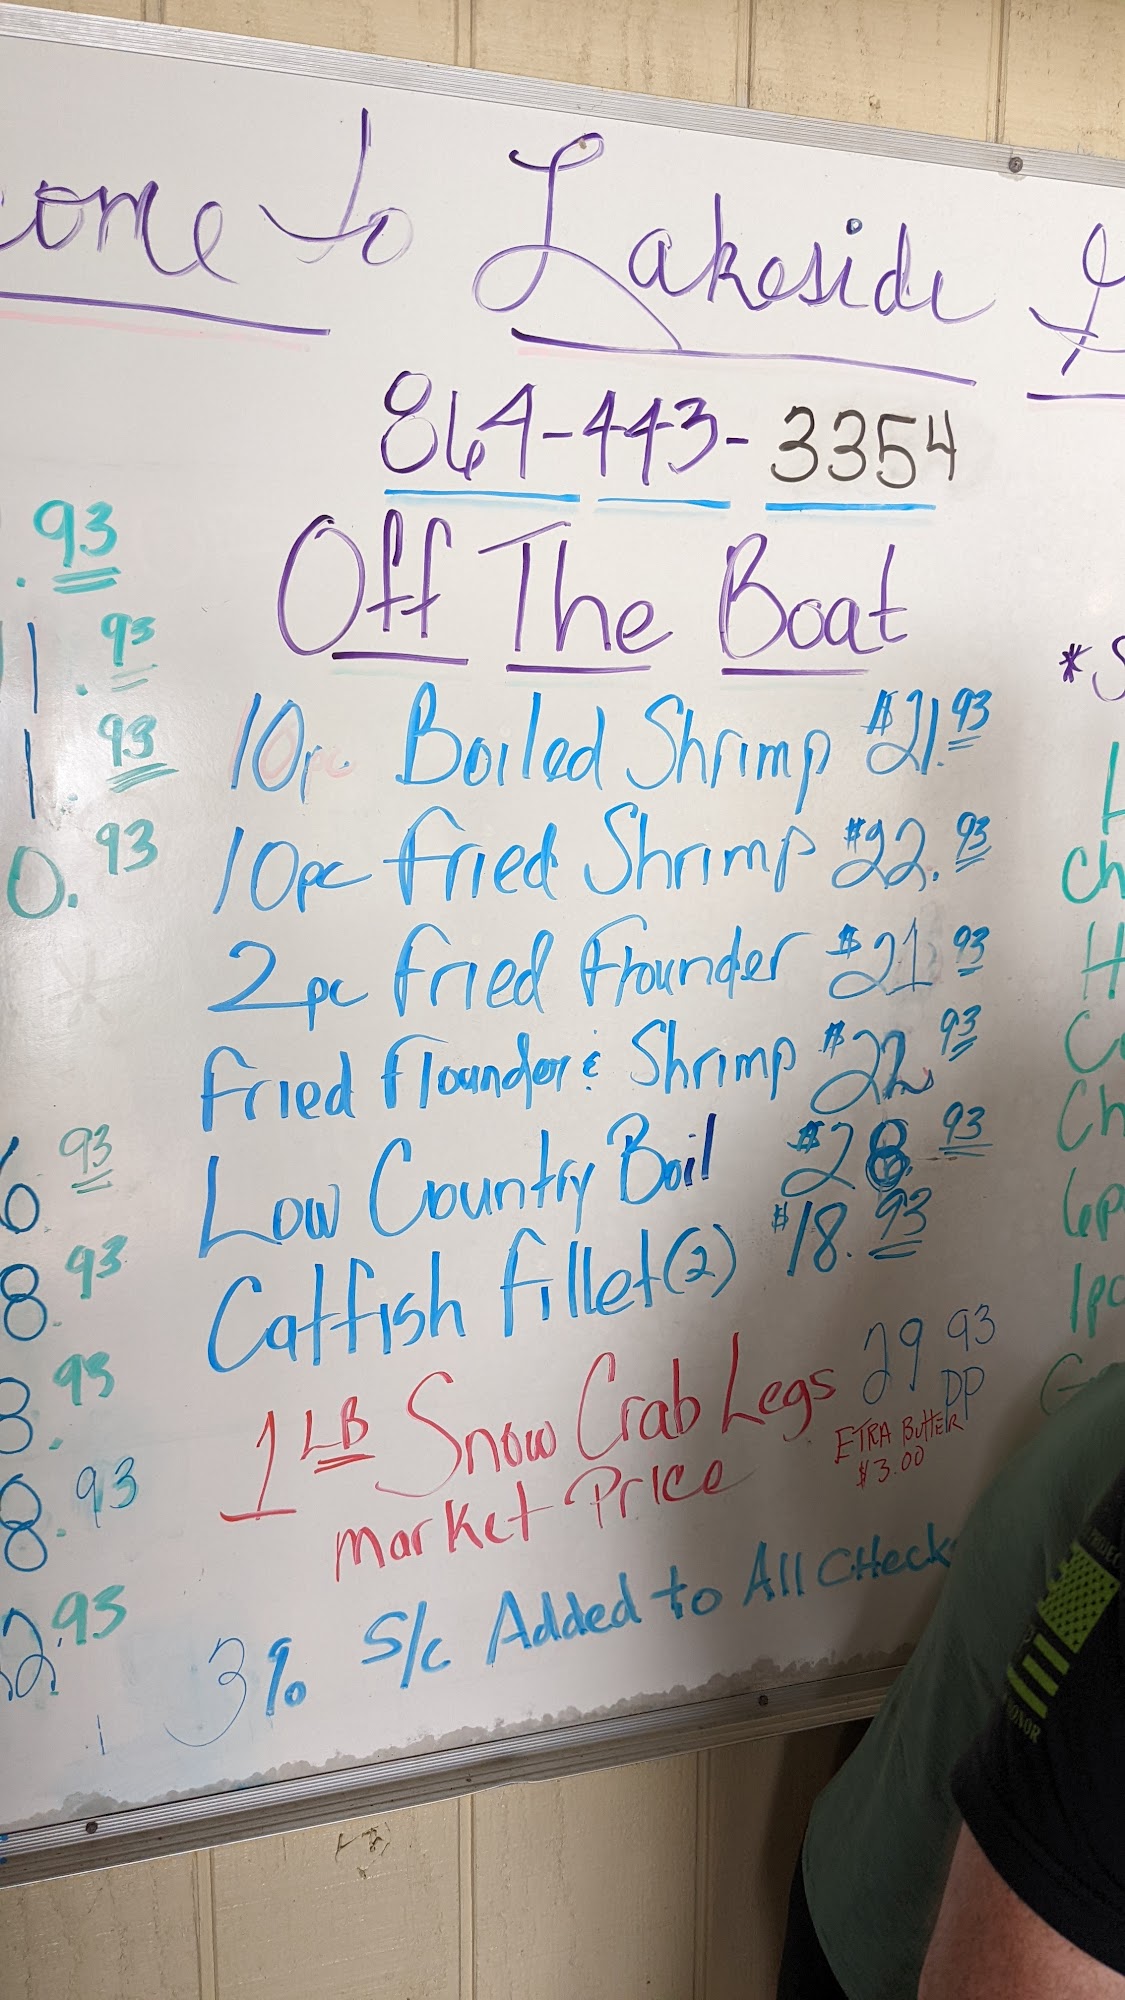 come to Lakeside
864-443-3354
Off The Boat
10p. Boiled Shrimp $21.93
10pc Fried Shrimp $22.93
2pc Fried Flounder $21 93
Fried Flounder & Shrimp $22 93
Low Country Boil $28 93
Catfish Fillet (2) $18.93
1 LB Snow Crab Legs 29 93
DP
Market Price
ETRA Butter
$3.00
3% S/C Added to All CHeck
.93
1.93
1.93
0.93
6 93
8.93
3.93
8.93
2.93
*S
Ch
H
Ch
6p
1pc
HONOR